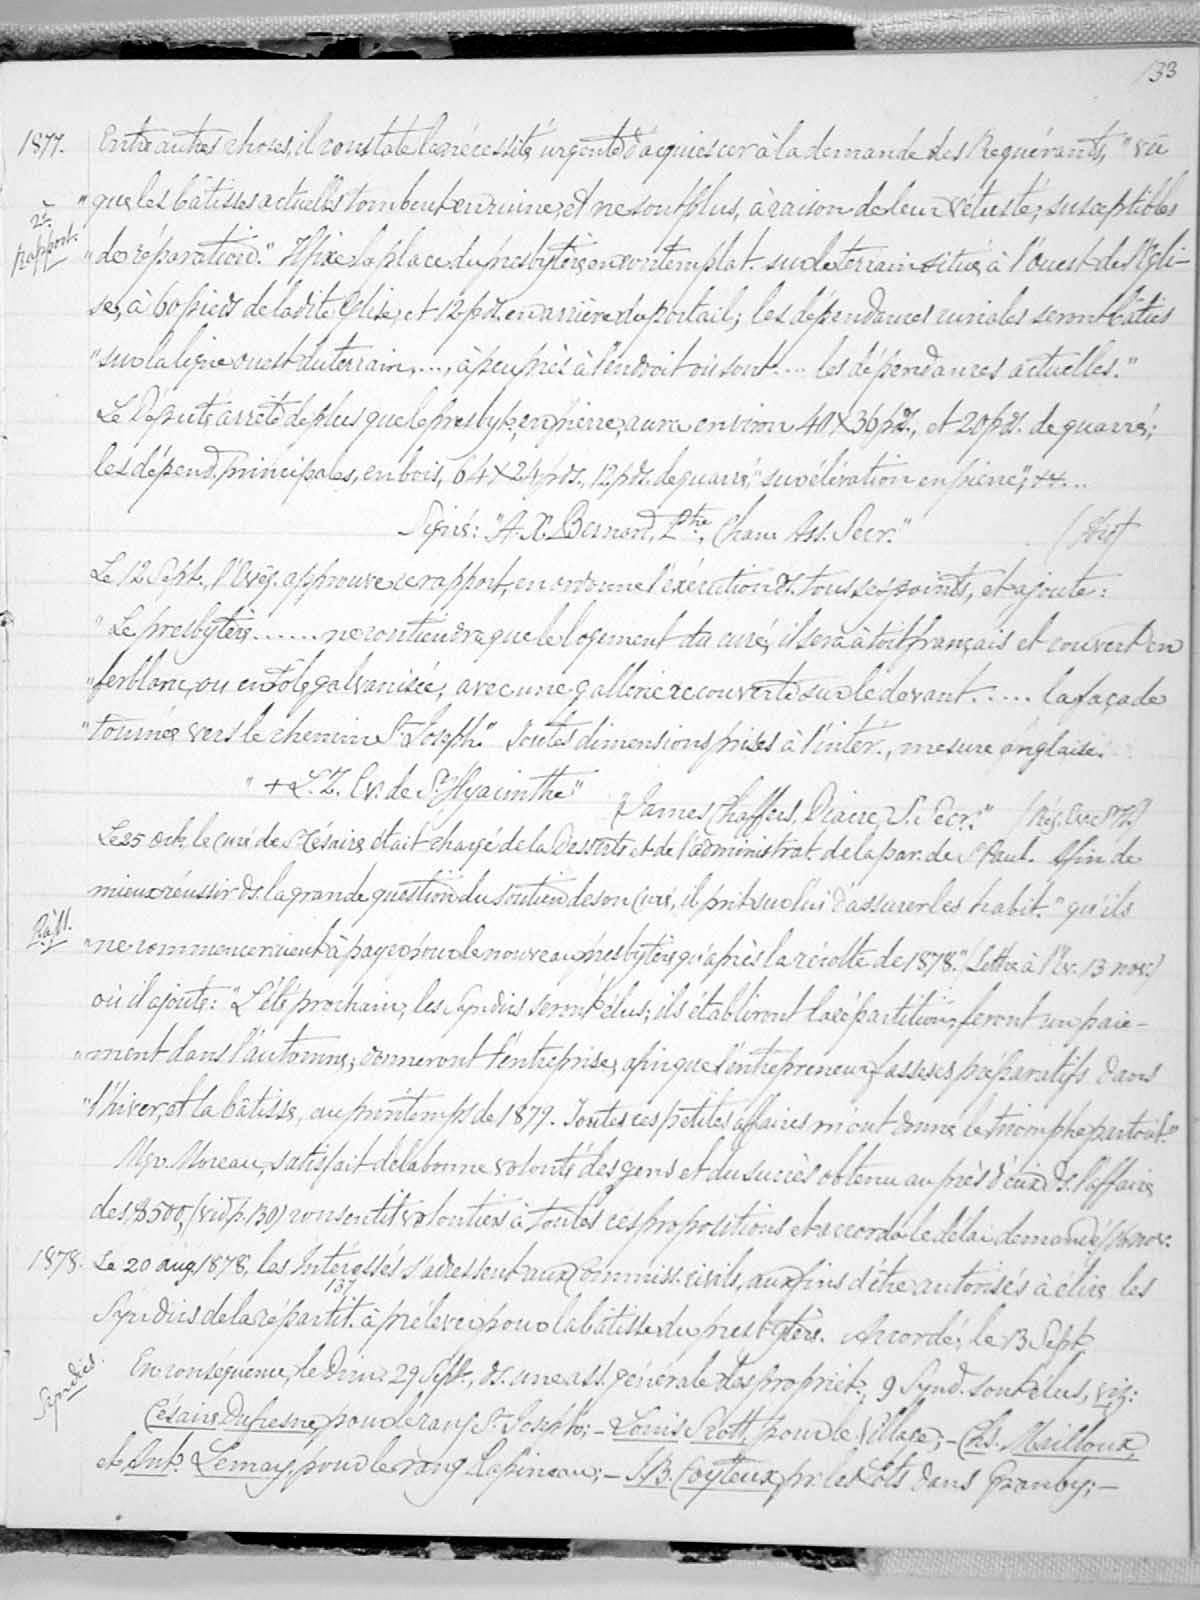 133
1877. Entre autres choses, il constate la nécessité urgente d'acquiescer à la demande des Requérants, "vu
"que les bâtisses actuelles tombent en ruine, et ne sont plus, à raison de leur vétusté, susceptibles
2e. rapport. "de réparation." Il fixe la place du presbytère en contemplat. sur le terrain situé à l'ouest de l'Egli-
se, à 60 pieds de la dite Eglise, et 12 pds. en arrière du portail; les dépendances curiales seront bâties
"sur la ligne ouest du terrain, ..., à peu près à l'endroit où sont ... les dépendances actuelles."
Le Député arrête de plus que le presbyt., en pierre, aura environ 40 X 36 pds., et 20 pds. de quarré;
les dépend. principales, en bois, 64 X 24 pds., 12 pds. de quarré, "sur élévation en pierre", ++...
Signé: "A. X. Bernard, Ptre, Chan. Ass. Secr."
Le 12 Sept., l'Evêq. approuve ce rapport, en ordonne l'exécution ds. tous ses points, et ajoute:
"Le presbytère ...... ne contiendra que le logement du curé, il sera à toit français et couvert en
"ferblanc, ou en tôle galvanisée, avec une gallerie recouverte sur le devant ..... la façade
"tournée vers le chemin St. Joseph." Toutes dimensions prises à l'intér., mesure anglaise.
"+ L. Z. Ev. de St. Hyacinthe"
"James Chaffers, Diacre, S. Secr." (Rég. Ev. St. H.)
Le 25 oct., le curé de St. Césaire était chargé de la Desserte et de l'administrat. de la par. de St. Paul. Afin de
mieux réussir ds. la grande question du soutien de son Curé, il prit sur lui d'assurer les habit. "qu'ils
"ne commenceraient à payer pour le nouveau presbytère qu'après la récolte de 1878." (Lettre à l'Ev. 13 nov.)
où il ajoute: "L'été prochain, les Syndics seront élus; ils établiront la répartition, feront un paie-
"ment dans l'automne; donneront l'entreprise, afin que l'entrepreneur fasse ses préparatifs dans
"l'hiver, et la bâtisse, au printemps de 1879. Toutes ces petites affaires m'ont donné le triomphe partout."
Mgr. Moreau, satisfait de la bonne volonté des gens et du succès obtenu auprès d'eux ds. l'affaire
des $500, (vid. p. 130) consentit volontiers à toutes ces propositions et accorda le délai demandé. (16 nov.
1878. Le 20 aug. 1878, les Intéressés s'adressent aux Commiss. civils, aux fins d'être autorisés à élire les
137
Syndics de la répartit. à prélever pour la bâtisse du presbytère. Accordé, le 13 Sept.
Syndics. En conséquence, le Dim. 29 Sept., ds. une ass. générale des propriét., 9 Synd. sont élus, viz:
Césaire Dufresne, pour le rang St. Joseph; - Louis Scott, pour le Village; - Chs. Mailloux,
et Ant. Lemay, pour le rang Papineau; - J. B. Coyteux, pr. les Lots dans Granby; -